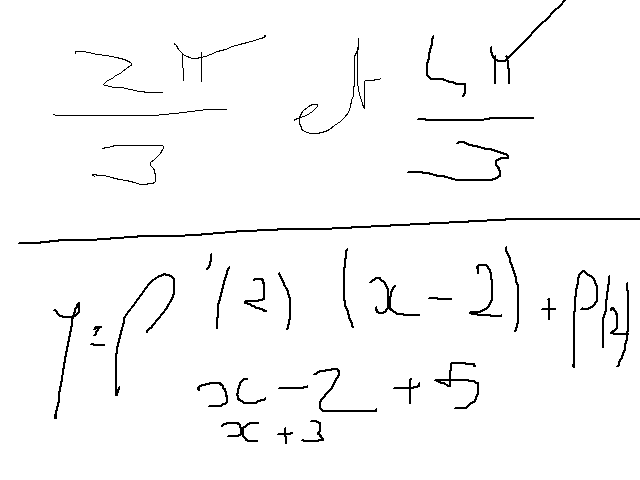 2π/3 et 4π/3
y = f'(2) (x - 2) + f(2)
x - 2 + 5
x + 3